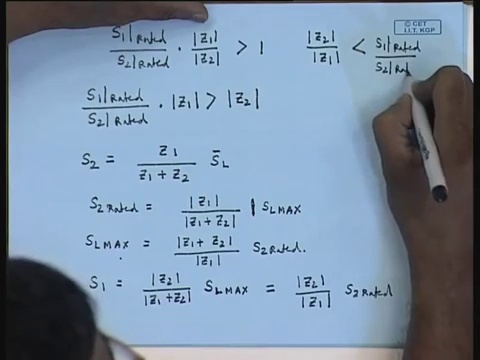 S1|Rated / S2|Rated · |Z1| / |Z2| > 1    |Z2| / |Z1| < S1|Rated / S2|Rat
© CET
I.I.T. KGP
S1|Rated / S2|Rated · |Z1| > |Z2|
S2 = Z1 / (Z1 + Z2) S̄L
S2 Rated = |Z1| / |Z1 + Z2| | SLMAX
SLMAX = |Z1 + Z2| / |Z1| S2 Rated.
S1 = |Z2| / |Z1 + Z2| SLMAX = |Z2| / |Z1| S2 Rated